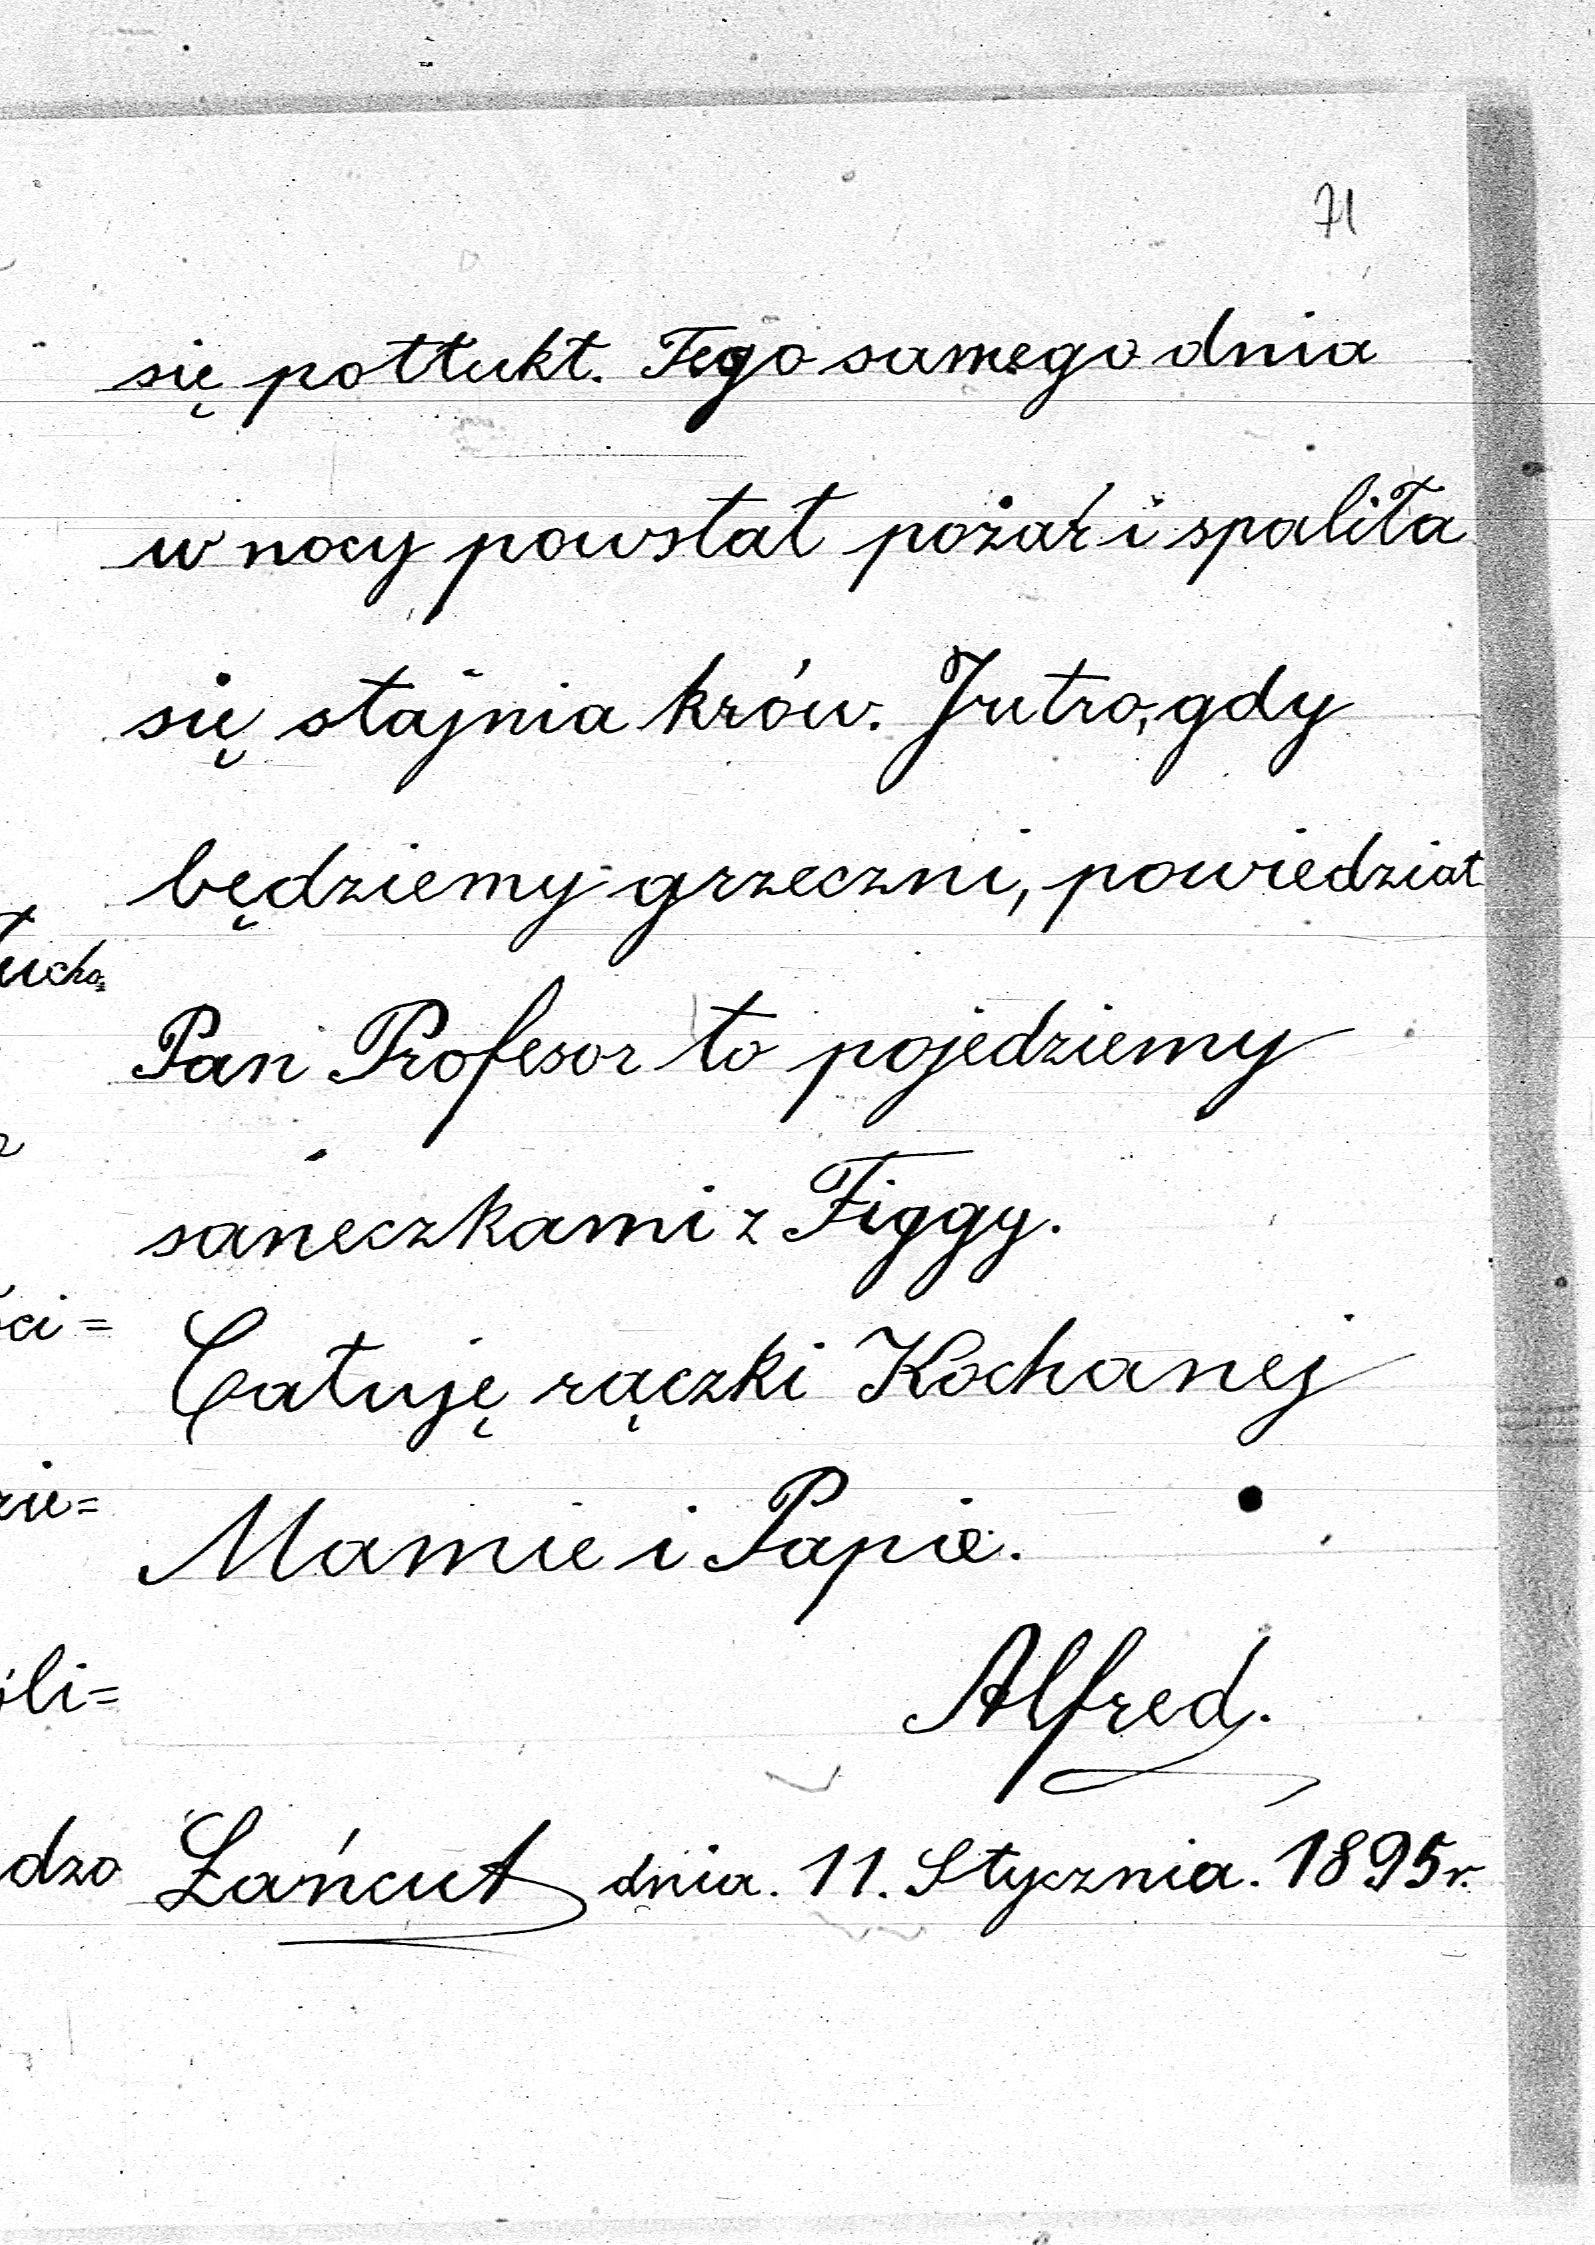 71
się potłukł. Tego samego dnia
w nocy powstał pożar i spaliła
się stajnia krów. Jutro, gdy
będziemy grzeczni, powiedział
Pan Profesor to pojedziemy
saneczkami z Figgy.
Całuję rączki Kochanej
Mamie i Papie.
Alfred.
Łańcut dnia. 11. Stycznia. 1895 r.
ści=
óli=
dzo